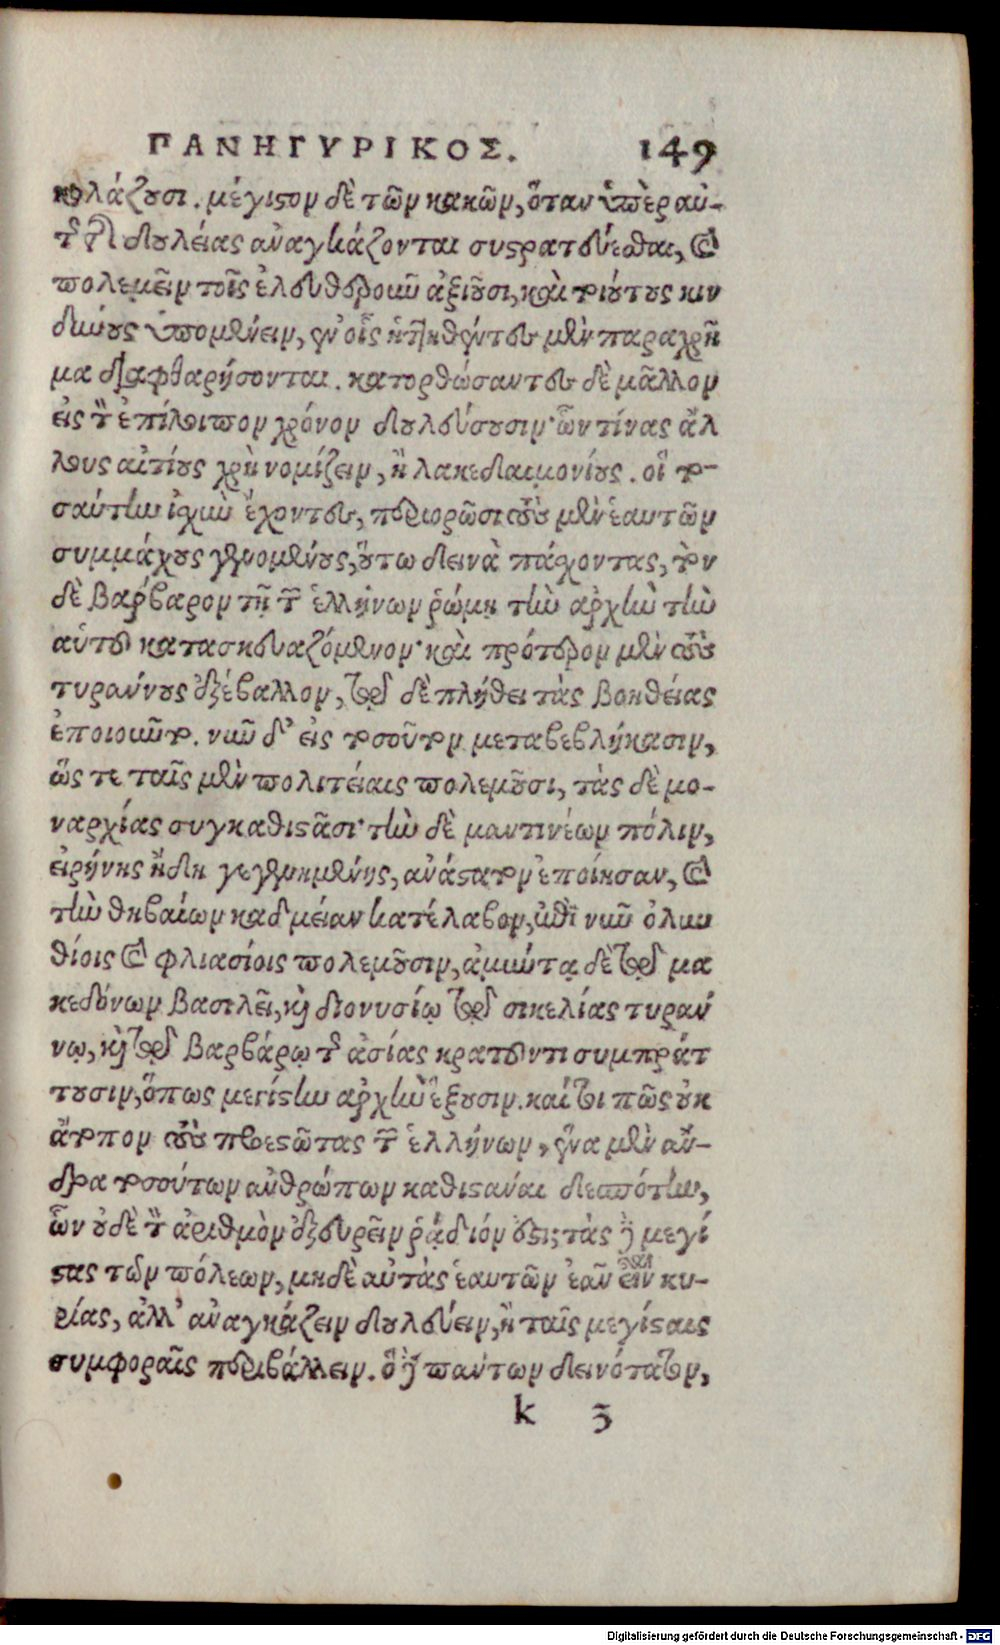 ΠΑΝΗΓΥΡΙΚΟΣ. 149
κολάζουσι. μέγιστον δὲ τῶν κακῶν, ὅταν ὑπὲρ αὐ-
τῆς τῆς δουλείας ἀναγκάζονται συστρατεύεσθαι, καὶ
πολεμεῖν τοῖς ἐλευθεροῦν ἀξιοῦσι, καὶ τοιούτους κιν
δύνους ὑπομένειν, ἐν οἷς ἡττηθέντες μὲν παραχρῆ
μα διαφθαρήσονται. κατορθώσαντες δὲ μᾶλλον
εἰς τὸν ἐπίλοιπον χρόνον δουλεύσουσιν· ὧν τίνας ἄλ
λους αἰτίους χρὴ νομίζειν, ἢ λακεδαιμονίους. οἳ το-
σαύτην ἰσχὺν ἔχοντες, περιορῶσι τοὺς μὲν ἑαυτῶν
συμμάχους γενομένους, οὕτω δεινὰ πάσχοντας, τὸν
δὲ βάρβαρον τῇ τῶν ἑλλήνων ῥώμῃ τὴν ἀρχὴν τὴν
αὑτοῦ κατασκευαζόμενον· καὶ πρότερον μὲν τοὺς
τυράννους ἐξέβαλλον, τῷ δὲ πλήθει τὰς βοηθείας
ἐποιοῦντο. νῦν δ' εἰς τοσοῦτον μεταβεβλήκασιν,
ὥς τε ταῖς μὲν πολιτείαις πολεμοῦσι, τὰς δὲ μο-
ναρχίας συγκαθιστᾶσι· τὴν δὲ μαντινέων πόλιν,
εἰρήνης ἤδη γεγενημένης, ἀνάστατον ἐποίησαν, καὶ
τὴν θηβαίων καδμείαν κατέλαβον, καὶ νῦν ὀλυν
θίοις καὶ φλιασίοις πολεμοῦσιν, ἀμύντᾳ δὲ τῷ μα
κεδόνων βασιλεῖ, καὶ διονυσίῳ τῷ σικελίας τυράν
νῳ, καὶ τῷ βαρβάρῳ τῆς ἀσίας κρατοῦντι συμπράτ
τουσιν, ὅπως μεγίστην ἀρχὴν ἕξουσιν. καί τοι πῶς οὐκ
ἄτοπον τοὺς προεστῶτας τῶν ἑλλήνων, ἕνα μὲν ἄν-
δρα τοσούτων ἀνθρώπων καθιστάναι δεσπότην,
ὧν οὐδὲ τὸν ἀριθμὸν ἐξευρεῖν ῥᾴδιόν ἐστι; τὰς δὲ μεγί
στας τῶν πόλεων, μηδὲ αὐτὰς ἑαυτῶν ἐᾶν εἶναι κυ-
ρίας, ἀλλ' ἀναγκάζειν δουλεύειν, ἢ ταῖς μεγίσταις
συμφοραῖς περιβάλλειν. ὃ δὲ πάντων δεινότατον,
k 3
Digitalisierung gefördert durch die Deutsche Forschungsgemeinschaft - DFG